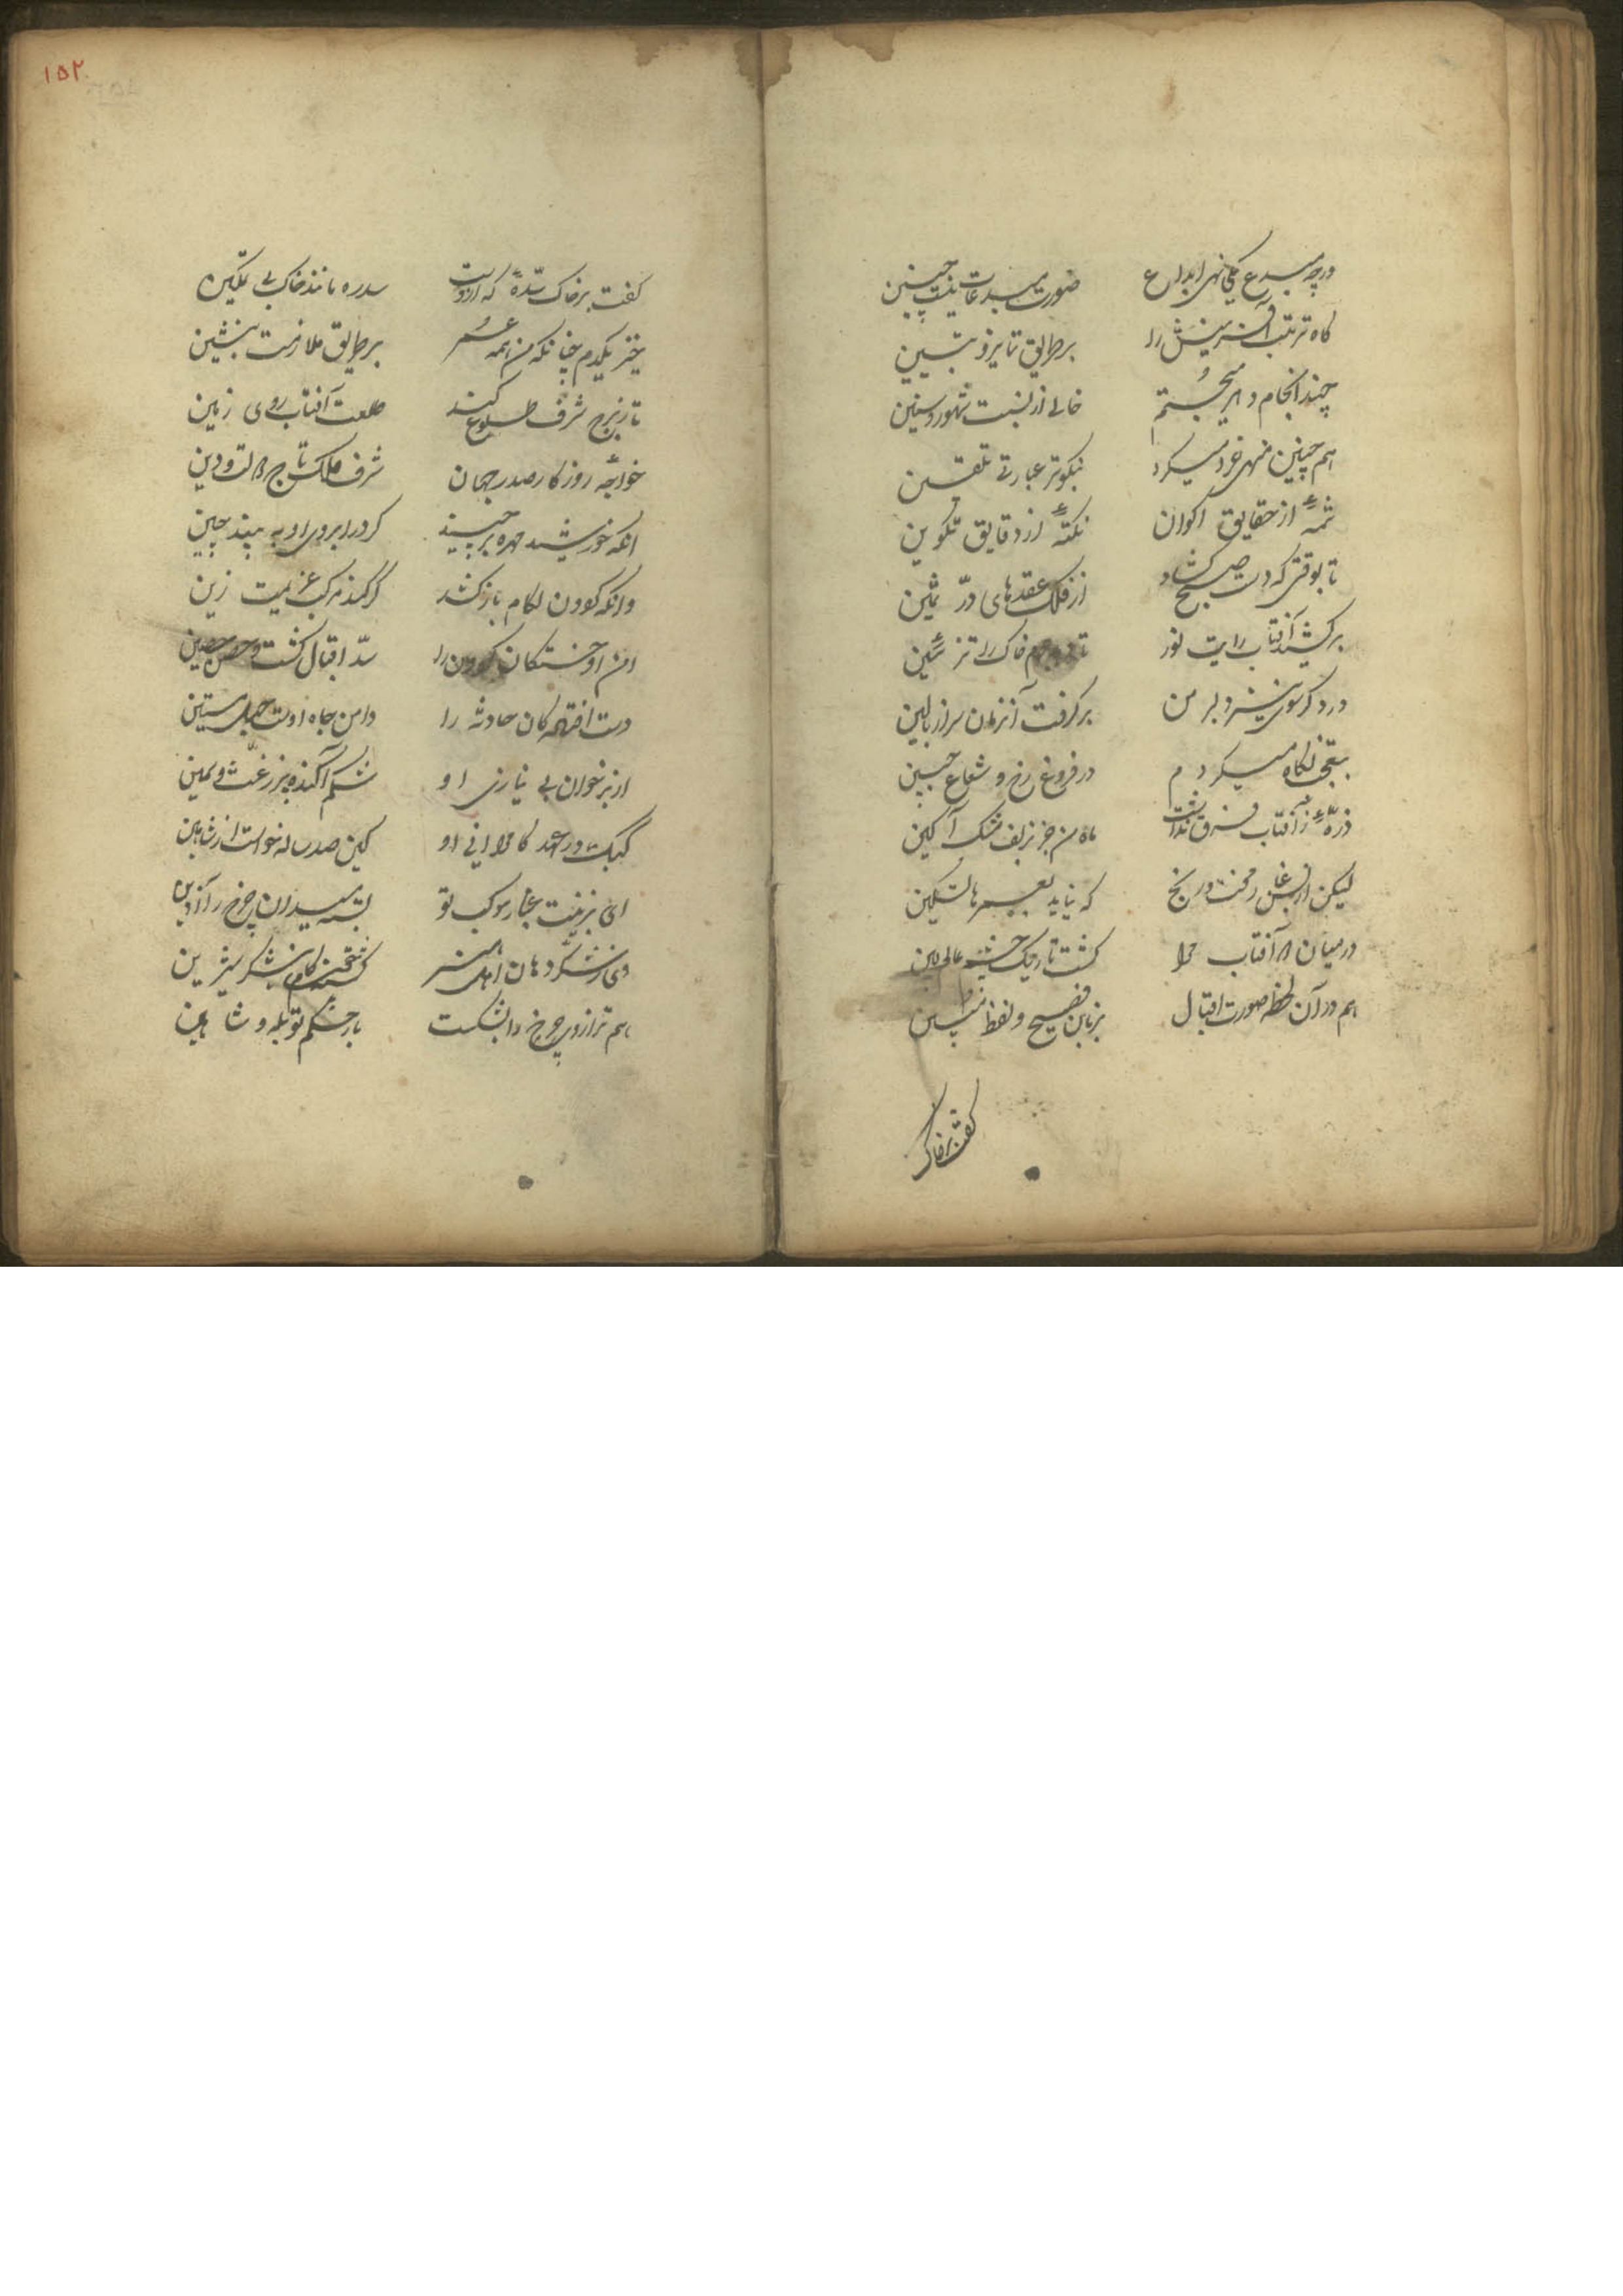 ورچه مبدع یکی نهی ابداع
صورت مبدعات نیست چنین
گاه ترتیب آفرینش را
بر طریق تایر و تبیین
چند انجام دهر میجستم
خالی از نسبت شهور و سنین
همچنین منهی خرد میکرد
نیکوتر عبارتی تلقین
شمهٔ از حقایق اکوان
نکتهٔ از دقایق تکوین
تا بوقتی که دست صبح گشاد
از فلک عقدهای درّ ثمین
برکشید آفتاب رایت نور
خاک را تزئین
در دگر سوی نیز دلبر من
برگرفت آنزمان سر از بالین
بتعجب نگاه میکردم
در فروغ رخ و شعاع جبین
ذرهٔ ز آفتاب فرق نداشت
ماه من جز بزلف مشک آگین
لیکن از محنت و رنج
که نیاید بعمرها تسکین
در میان دو آفتاب مرا
گشت تاریک چشم عالم بین
هم در آن لحظه صورت اقبال
بزبان فصیح و لفظ متین
گفت برخاک
۱۵۲
گفت برخاک سدّهٔ که ازوست
سدره مانند خاک بی تمکین
خیز یکدم چنانکه من همه عمر
بر طریق ملازمت بنشین
تا ز برج شرف طلوع کند
طلعت آفتاب روی زمین
خواجهٔ روزگار صدر جهان
شرف ملک تاج دولت و دین
آنکه خورشید مهره برچیند
گر در ابروی او به بیند چین
وانکه گردون لگام باز کشد
گر کند مرکب عزیمت زین
امن او خستگان گردون را
سدّ اقبال گشت و حصن حصین
دست افتادگان حادثه را
دامن جاه اوست حبل متین
از بر خوان بی نیازی او
شکم آکنده پر ز غث و سمین
کبک در عهد کامرانی او
کین صد ساله خواست از شاهین
ای بزینت غبار موکب تو
بسته میدان چرخ را آذین
وی ز شکرت دهان اهل هنر
گشته همچون شکر شیرین
هم ترازوی چرخ را بشکست
بار حکم تو پله و شاهین